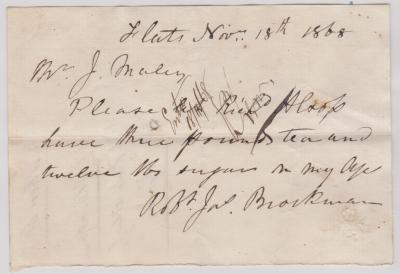 Flats Nov. 18th 1868
Mr J. Maley
Please let Rich
have three pounds tea and
twelve lbs sugar on my
Robt Jas. Brockman